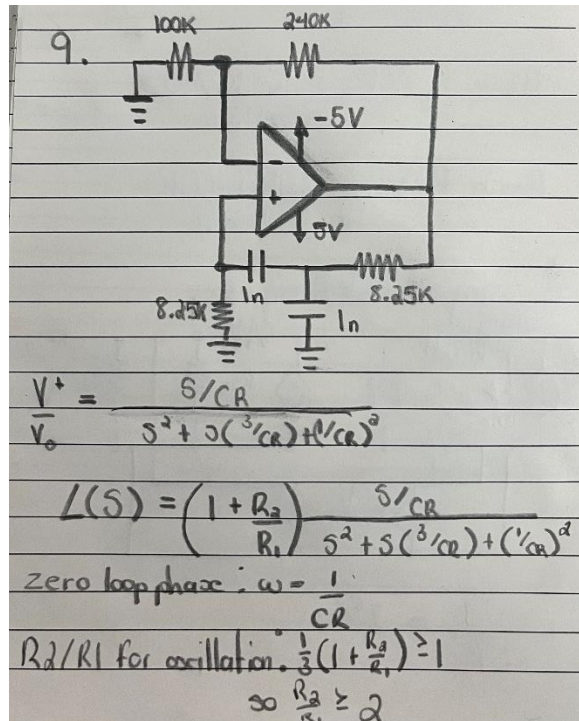 100K 240K
9.
-5V
-
+
5V
1n 8.25K
8.25K
1n
V+/Vo = S/CR / S² + S(3/CR) + (1/CR)²
L(S) = (1 + R2/R1) S/CR / S² + S(3/CR) + (1/CR)²
zero loop phase: ω = 1/CR
R2/R1 for oscillation: 1/3(1 + R2/R1) ≥ 1
so R2/R1 ≥ 2